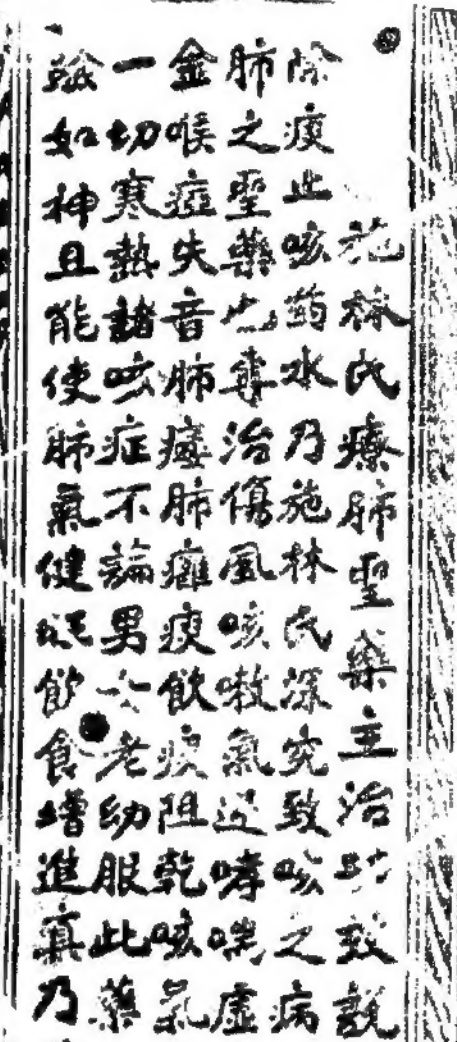 施林氏療肺聖藥主治功效說
除痰止咳葯水乃施林氏深究致咳之病
肺之聖藥也專治傷風咳嗽氣逆哮喘虛
金喉瘂失音肺痿肺癰痰飲痰阻乾咳氣
一切寒熱諸咳症不論男女老幼服此藥
驗如神且能使肺氣健旺飲食增進真乃